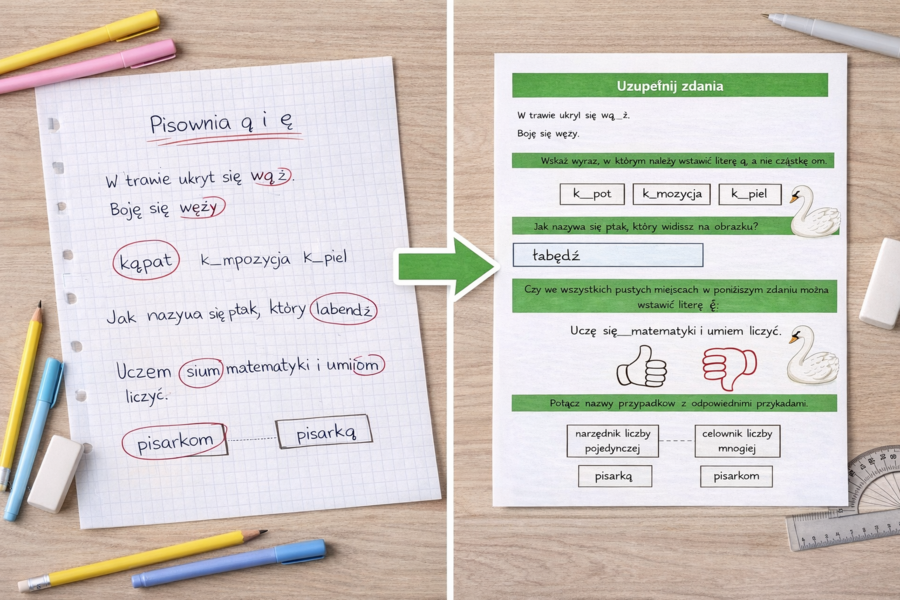 Pisownia ą i ę
W trawie ukrył się wąż.
Boję się węży
kąpat k_mpozycja k_piel
Jak nazyua się ptak, który labendź
Uczem sium matematyki i umiiom
liczyć.
pisarkom pisarką
Uzupełnij zdania
W trawie ukryl się wą_ż.
Boję się węzy.
Wskaż wyraz, w którym należy wstawić literę ą, a nie cząstkę om.
k__pot k_mozycja k__piel
Jak nazywa się ptak, który widissz na obrazku?
łabędź
Czy we wszystkich pustych miejscach w poniższym zdaniu można
wstawić literę ę:
Uczę się__matematyki i umiem liczyć.
Połącz nazwy przypadkow z odpowiednimi przykadami.
narzędnik liczby celownik liczby
pojedynczej mnogiej
pisarką pisarkom